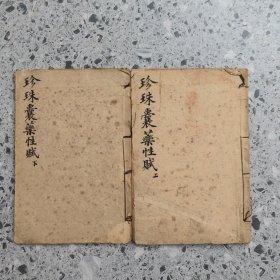 珍珠囊藥性賦上
珍珠囊藥性賦下